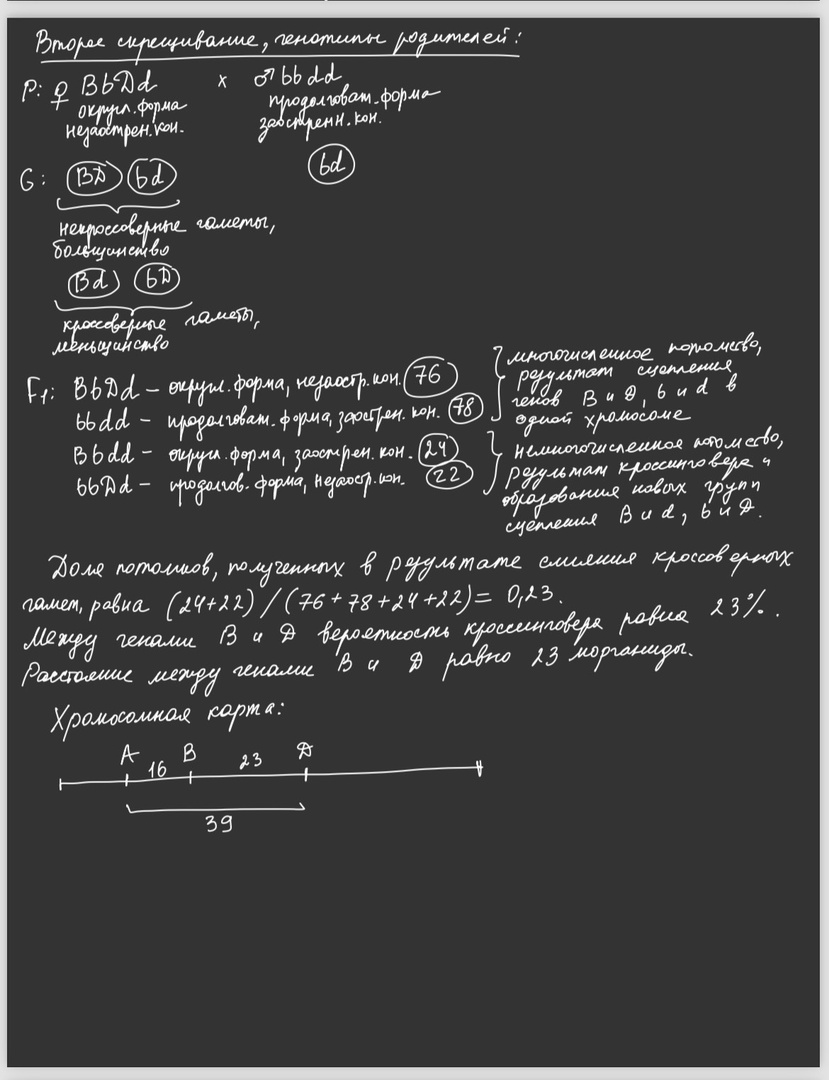 Второе скрещивание, генотипы родителей:
P: ♀ BbDd x ♂ bbdd
округл. форма продолговат. форма
незаострен. кон. заостренн. кон.
G: BD bd bd
некроссоверные гаметы,
большинство
Bd bD
кроссоверные гаметы,
меньшинство
F1: BbDd – округл. форма, незаостр. кон. 76
bbdd – продолговат. форма, заострен. кон. 78
Bbdd – округл. форма, заострен. кон. 24
bbDd – продолгов. форма, незаостр. кон. 22
многочисленное потомство,
результат сцепления
генов B и D, b и d в
одной хромосоме
немногочисленное потомство,
результат кроссинговера и
образования новых групп
сцепления B и d, b и D.
Доля потомков, полученных в результате слияния кроссоверных
гамет, равна (24+22) / (76+78+24+22) = 0,23.
Между генами B и D вероятность кроссинговера равна 23%.
Расстояние между генами B и D равно 23 морганиды.
Хромосомная карта:
A B D
16 23
39